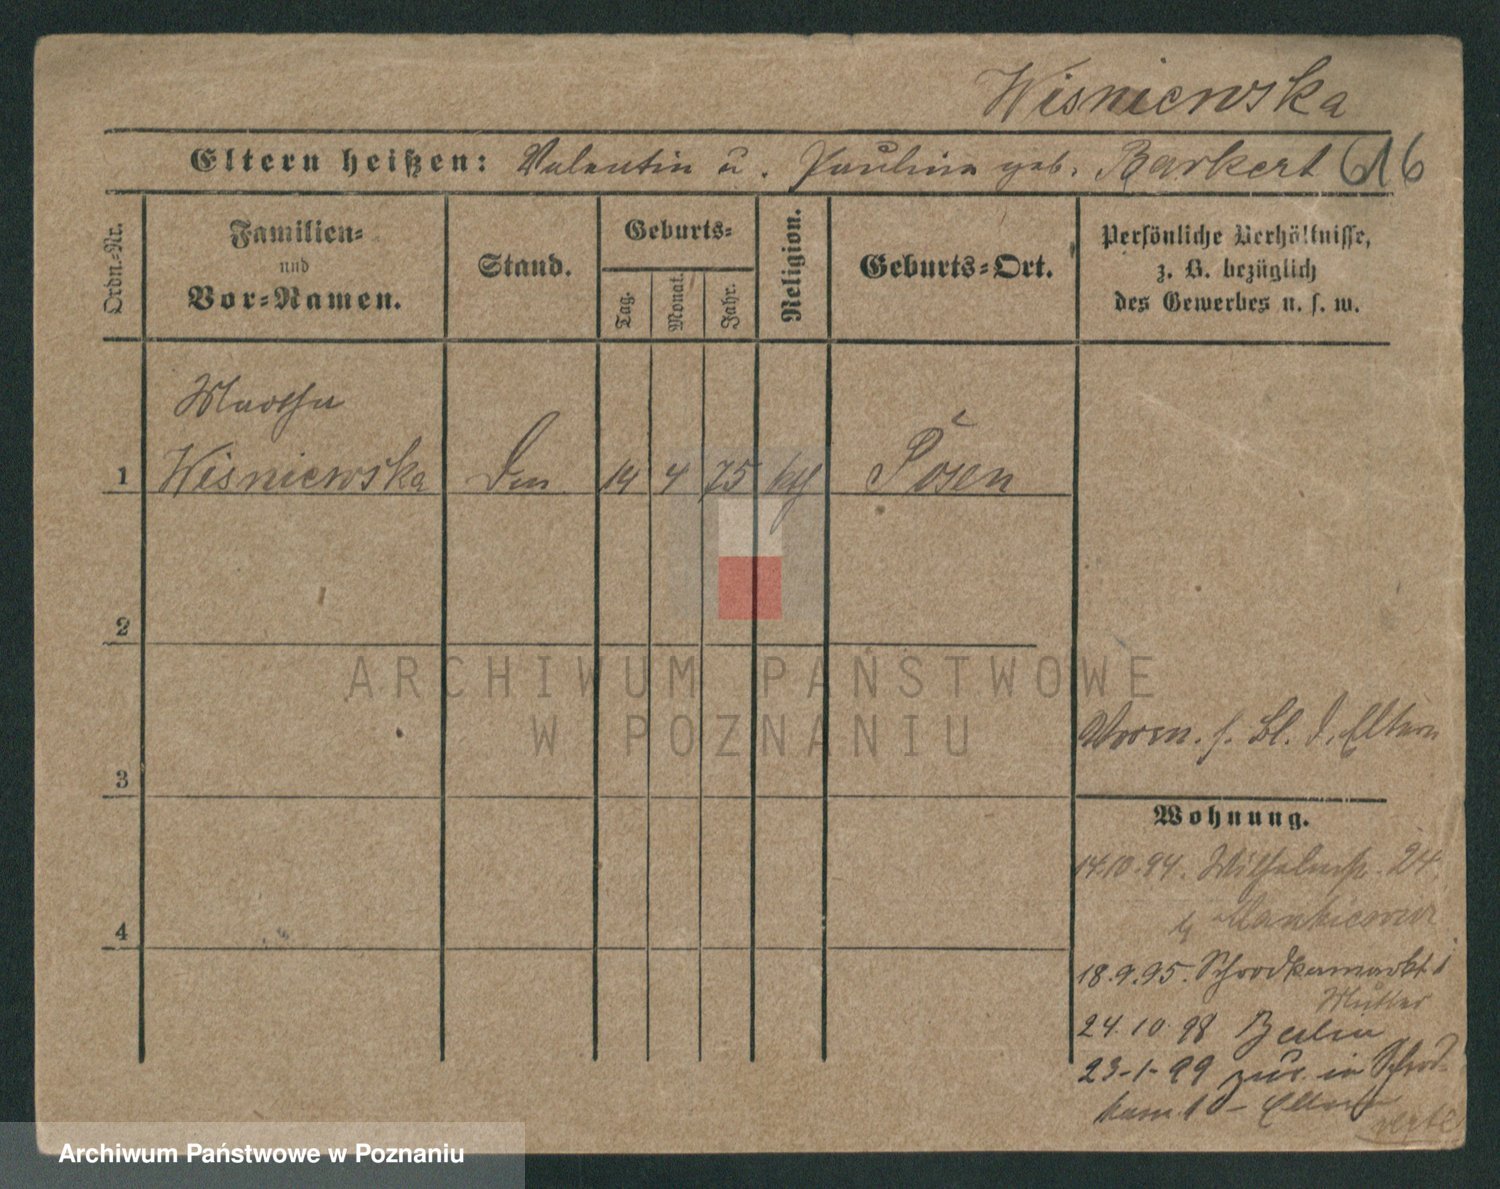 Wisniewska
Eltern heißen: Valentin u. Paulina geb. Barkert 616
Ordn.-Nr.
Familien-
und
Vor-Namen.
Stand.
Geburts-
Tag.
Monat.
Jahr.
Religion.
Geburts-Ort.
Persönliche Verhältnisse,
z. B. bezüglich
des Gewerbes u. s. w.
Martha
1 Wisniewska 14 4 75 Posen
2
3
4
Vorm. s. Bl. d. Eltern
Wohnung.
14.10.94. Wilhelmstr. 24.
18.9.95. Schrodkamarkt 1
Mutter
24.10.98 Berlin
23-1-99 zur. in Schrod-
kam. 10 - Eltern
verte
ARCHIWUM PAŃSTWOWE
W POZNANIU
Archiwum Państwowe w Poznaniu